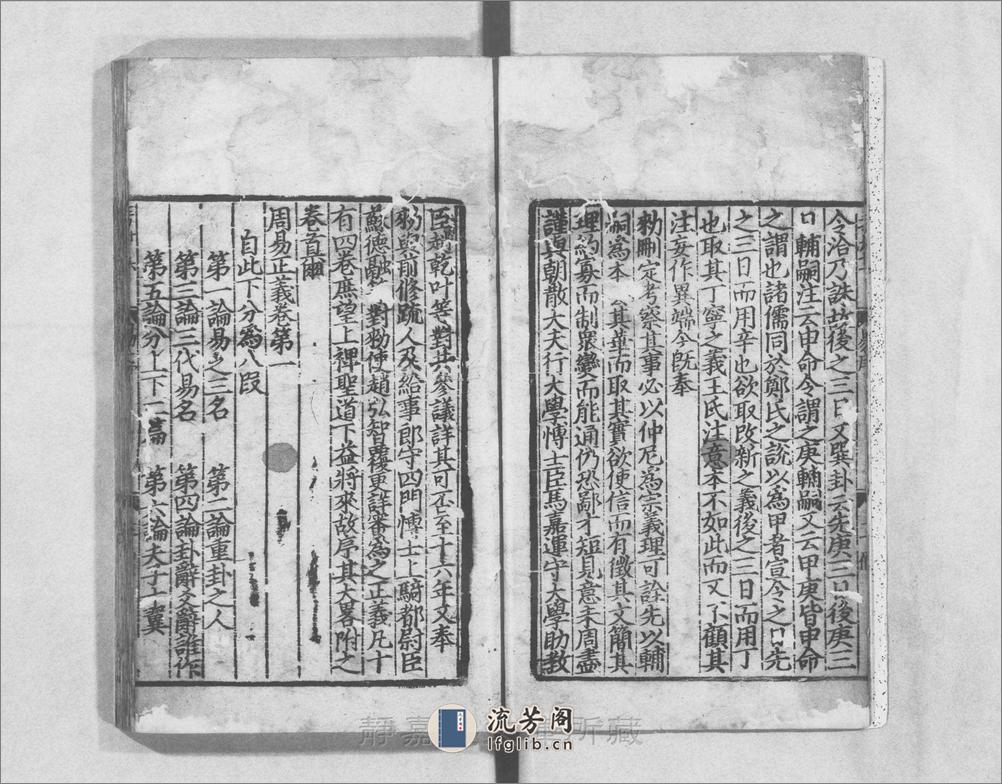 令洽乃誅故後之三日又巽卦云先庚三日後庚三
日輔嗣注云申命令謂之庚輔嗣又云甲庚皆申命
之謂也諸儒同於鄭氏之說以為甲者宣令之日先
之三日而用辛也欲取改新之義後之三日而用丁
也取其丁寧之義王氏注意本不如此而又不顧其
注妄作異端今旣奉
勑刪定考察其事必以仲尼為宗義理可詮先以輔
嗣為本 其華而取其實欲使信而有徵其文簡其
理約寡而制衆變而能通仍恐鄙才短見意未周盡
謹與朝散大夫行大學博士臣馬嘉運守大學助教
臣趙乾叶等對共叅議詳其可否至十六年又奉
勑與前修䟽人及給事郎守四門博士上騎都尉臣
蘇德融 對勑使趙弘智覆更詳審為之正義凡十
有四卷庶望上裨聖道下益將來故序其大畧附之
卷首爾
周易正義卷第一
自此下分為八段
第一論易之三名 第二論重卦之人
第三論三代易名 第四論卦辭爻辭誰作
第五論分上下二篇 第六論夫子十翼
靜嘉 所藏
流芳阁
lfglib.cn